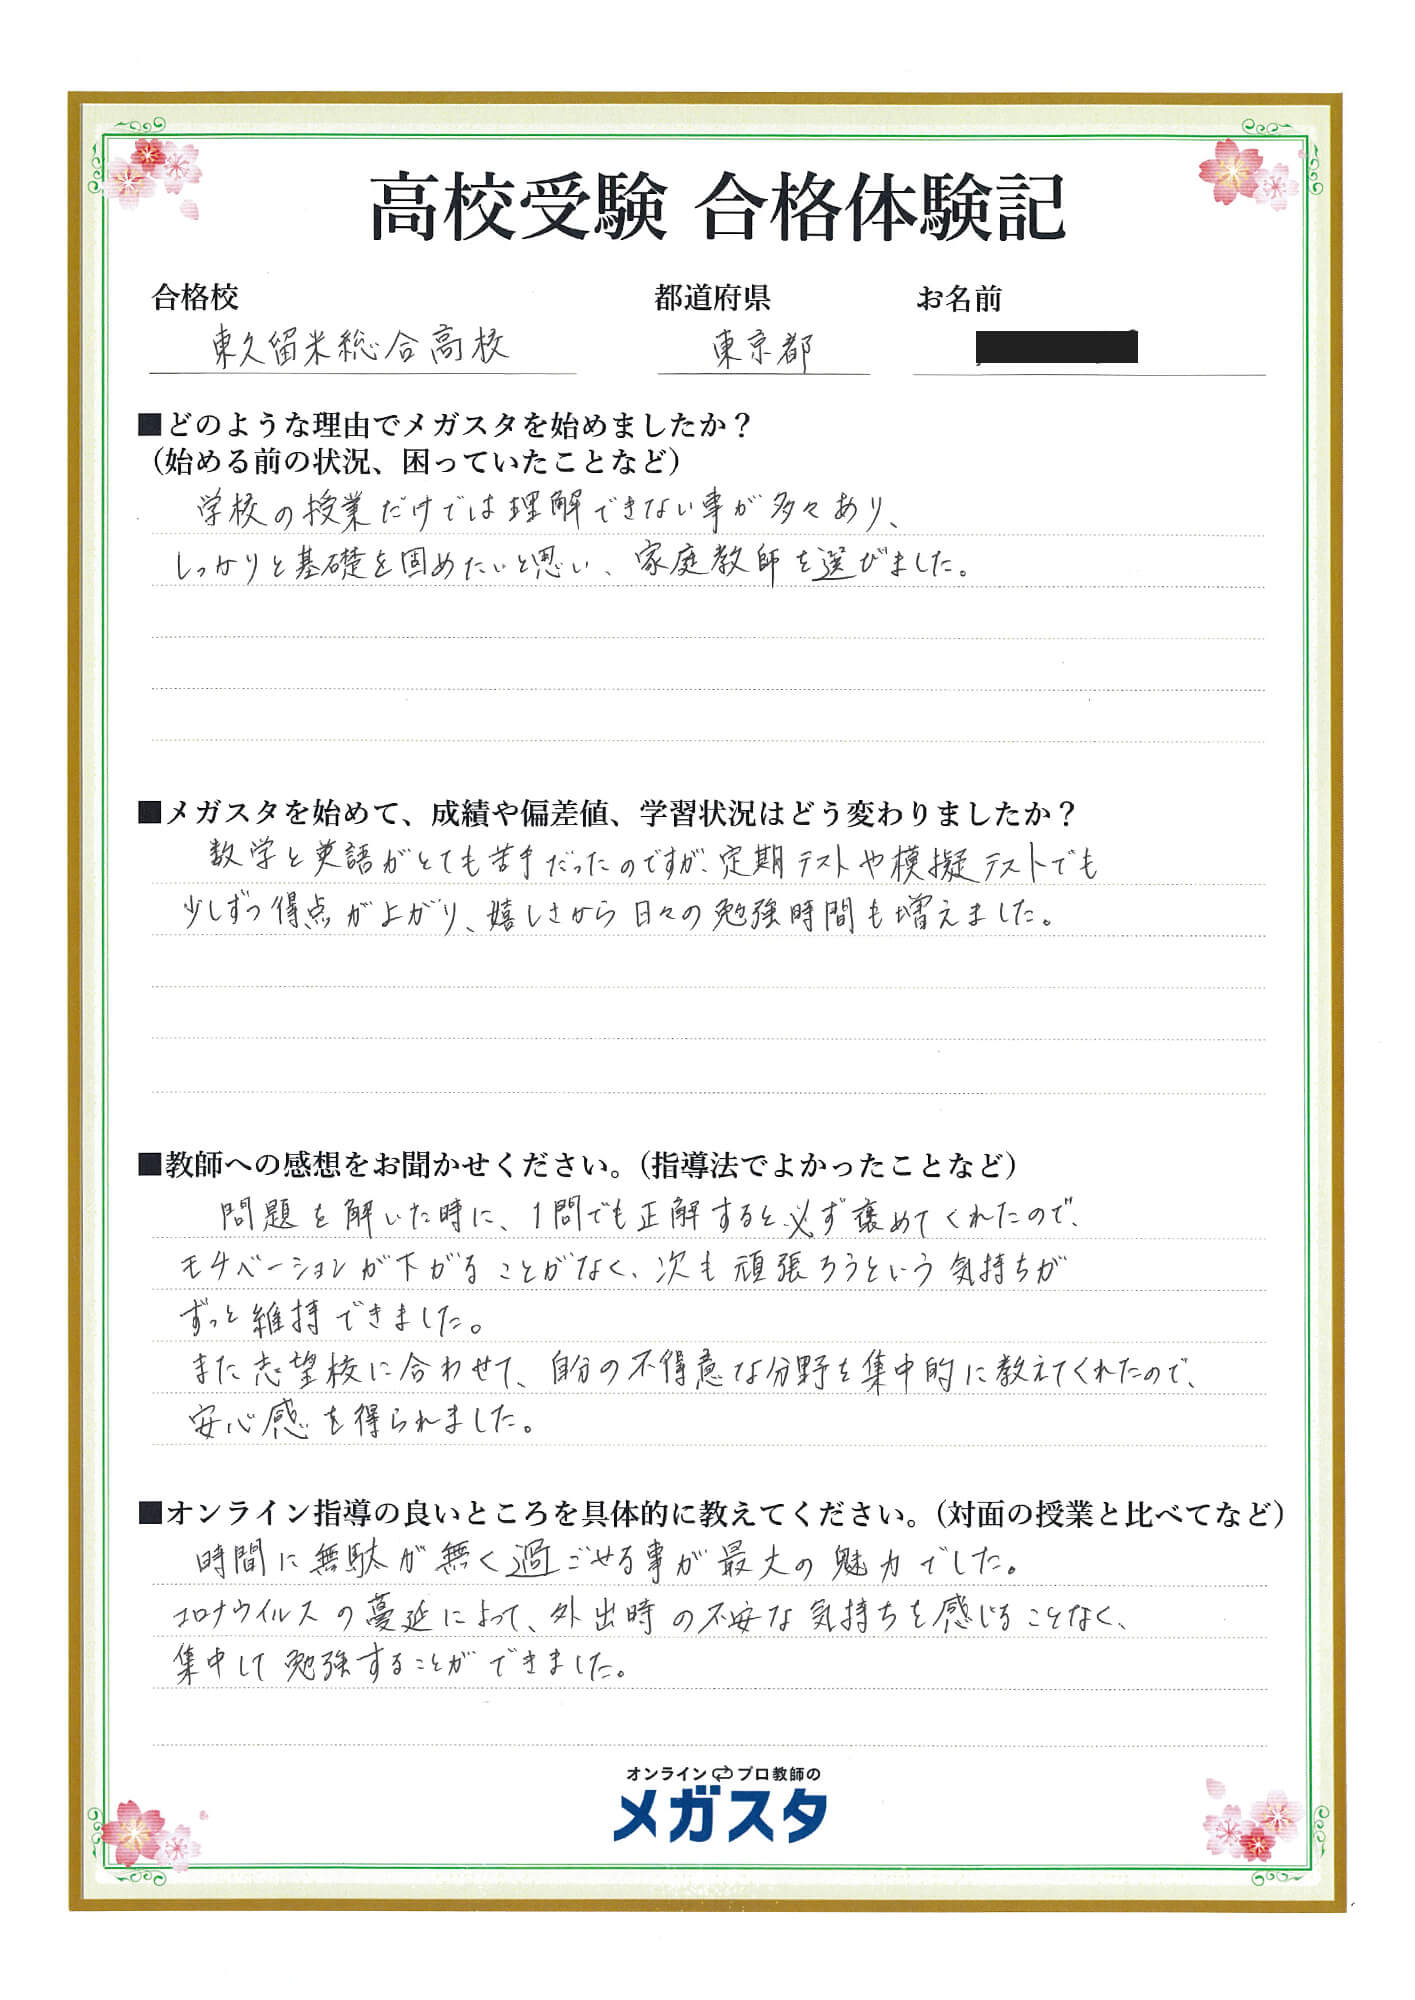 高校受験 合格体験記
合格校 都道府県 お名前
東久留米総合高校 東京都
■どのような理由でメガスタを始めましたか？
（始める前の状況、困っていたことなど）
学校の授業だけでは理解できない事が多々あり、
しっかりと基礎を固めたいと思い、家庭教師を選びました。
■メガスタを始めて、成績や偏差値、学習状況はどう変わりましたか？
数学と英語がとても苦手だったのですが、定期テストや模擬テストでも
少しずつ得点が上がり、嬉しさから日々の勉強時間も増えました。
■教師への感想をお聞かせください。（指導法でよかったことなど）
問題を解いた時に、1問でも正解すると必ず褒めてくれたので、
モチベーションが下がることがなく、次も頑張ろうという気持ちが
ずっと維持できました。
また志望校に合わせて、自分の不得意な分野を集中的に教えてくれたので、
安心感を得られました。
■オンライン指導の良いところを具体的に教えてください。（対面の授業と比べてなど）
時間に無駄が無く過ごせる事が最大の魅力でした。
コロナウイルスの蔓延によって、外出時の不安な気持ちを感じることなく、
集中して勉強することができました。
オンライン プロ教師の
メガスタ